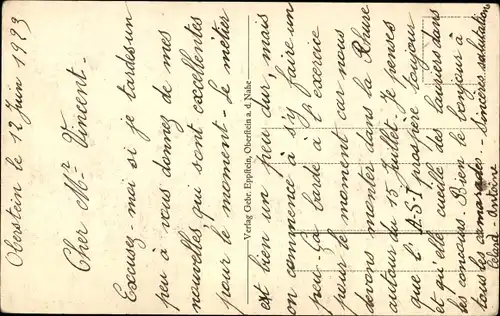 Oberstein le 12 Juin 1923
Cher Mr Vincent.
Excusez-moi si je tardes un
peu à vous donnez de mes
nouvelles qui sont excellentes
pour le moment - Le métier
est bien un peu dur, mais
on commence à s'y faire un
peu - Ça barde à l'exercice
pour le moment car nous
devons monter dans la Rhure
autour du 15 Juillet. Je penses
que l'A-S-I prospère toujours
et qu'elle cueille des lauriers dans
les concours. Bien le bonjour à
tous les camarades - Sincères salutations
Verlag Gebr. Eppstein, Oberstein a. d. Nahe